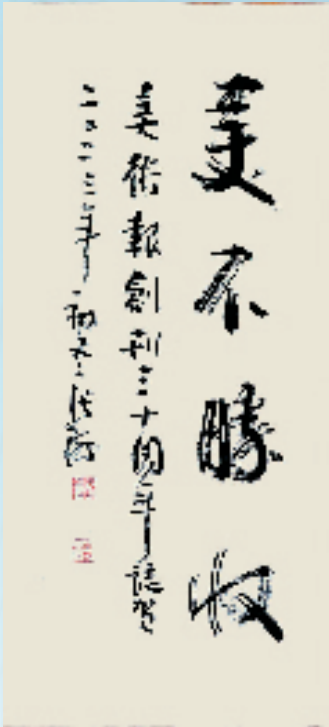 美不勝收
美術報創刊三十周年誌賀
二〇二三年